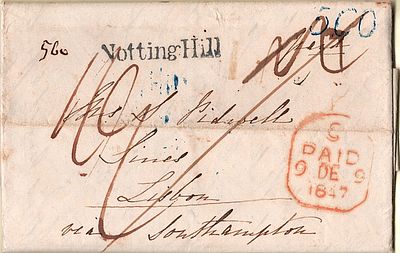 560
Notting Hill
500
Pidwell
Lisbon
via Southampton
S
PAID
9 DE 9
1847